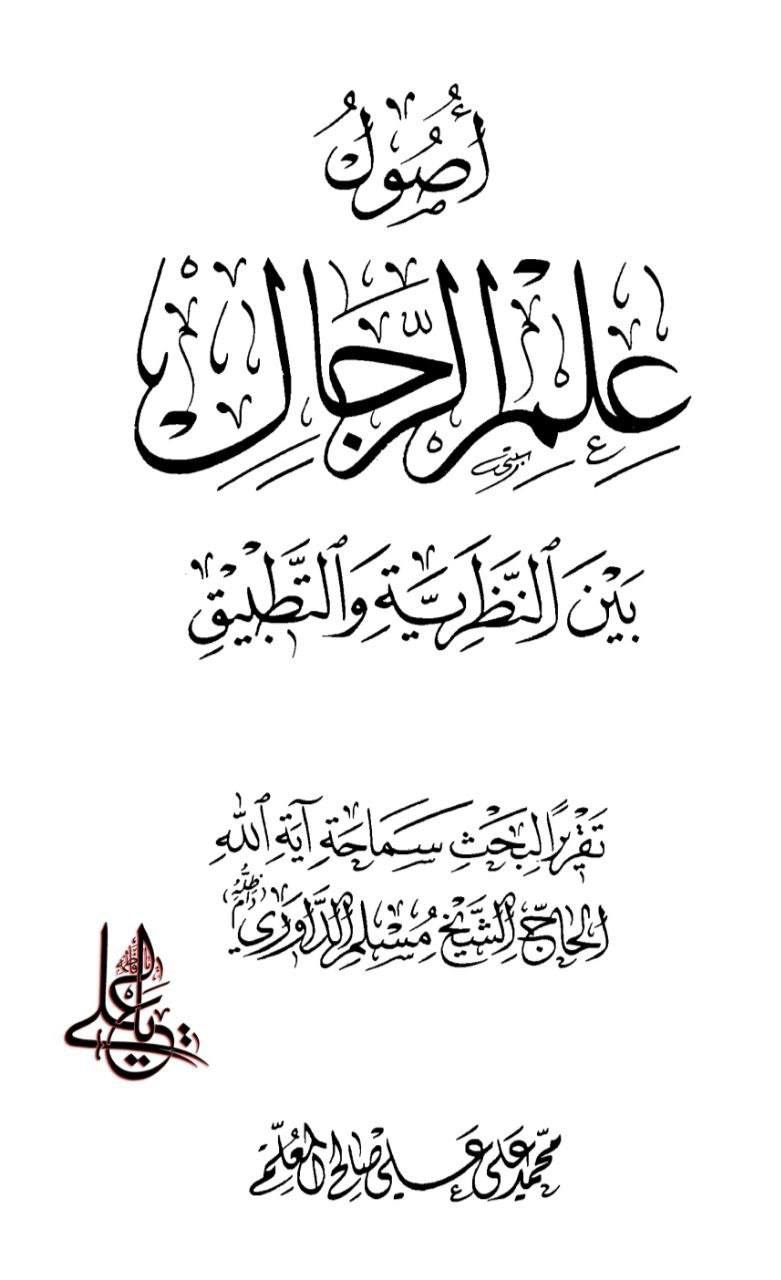 أُصُولُ
عِلْمِ الرِّجَالِ
بَيْنَ ٱلنَّظَرِيَّةِ وَٱلتَّطْبِيْقِ
تَقْرِيْرًا لِبَحْثِ سَمَاحَةِ آيَةِ ٱللهِ
الحَاجّ الشَّيْخ مُسْلِم الدَّاوَرِي (دَامَ ظِلُّهُ)
يا علي
محمّد علي عَلي صَالِح المُعَلِّم